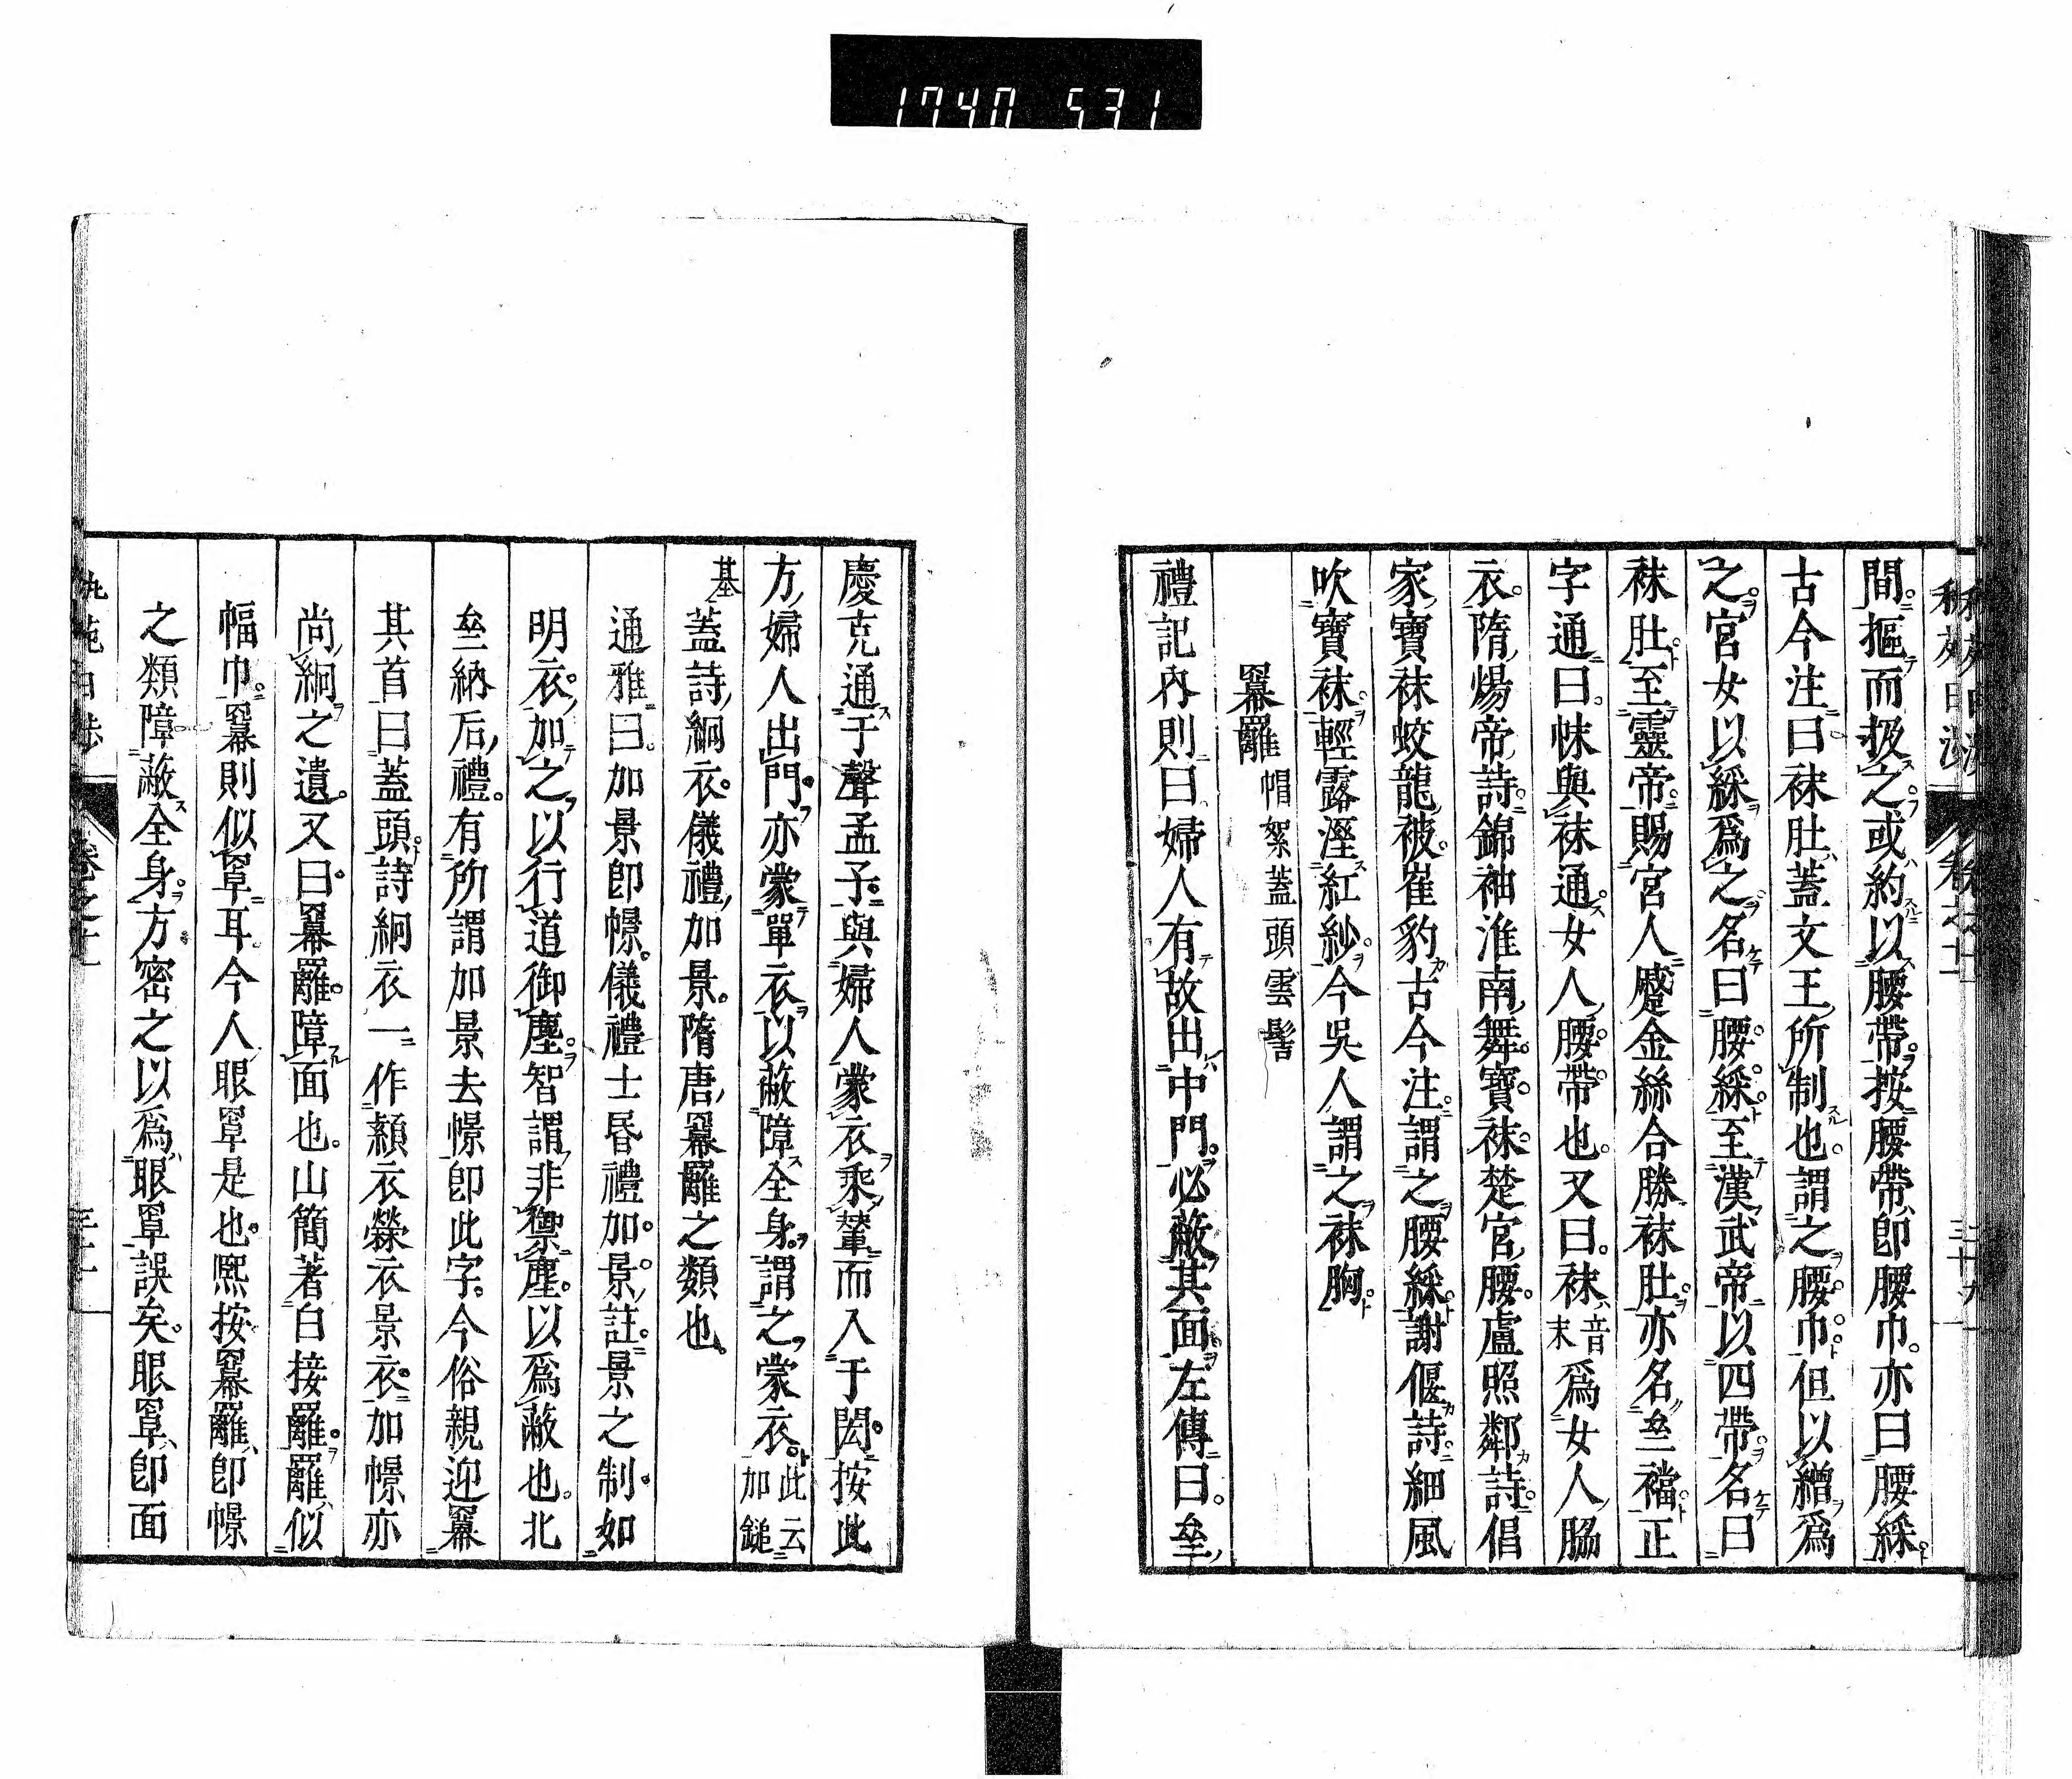 1740 531
秇苑日渉 卷之十二
間摳而扱之或約以腰帶按腰帶卽腰巾亦曰腰綵
古今注曰袜肚蓋文王所制也謂之腰巾但以繒爲
之宮女以綵爲之名曰腰綵至漢武帝以四帶名曰
袜肚至靈帝賜宮人蹙金絲合勝袜肚亦名䒭襠正
字通曰帓與袜通女人腰帶也又曰袜音末爲女人脇
衣隋煬帝詩錦袖淮南舞寶袜楚宮腰盧照鄰詩倡
家寶袜蛟龍被崔豹古今注謂之腰綵謝偃詩細風
吹寶袜輕露溼紅紗今吳人謂之袜胸
羃䍦 帽絮 蓋頭 雲髻
禮記內則曰婦人有故出中門必蔽其面左傳曰㘴
慶克通于聲孟子與婦人蒙衣乘輦而入于閎按此
方婦人出門亦蒙單衣以蔽障全身謂之蒙衣此云加鎚
基蓋詩絅衣儀禮加景隋唐羃䍦之類也
通雅曰加景卽幜儀禮士昏禮加景註景之制如
明衣加之以行道御塵智謂非禦塵以爲蔽也北
㘴納后禮有所謂加景去幜卽此字今俗親迎羃
其首曰蓋頭詩絅衣一作顈衣檾衣景衣加幜亦
尚絅之遺又曰羃䍦障面也山簡著白接䍦䍦似
幅巾羃則似罩耳今人眼罩是也熙按羃䍦卽幜
之類障蔽全身方密之以爲眼罩誤矣眼罩卽面